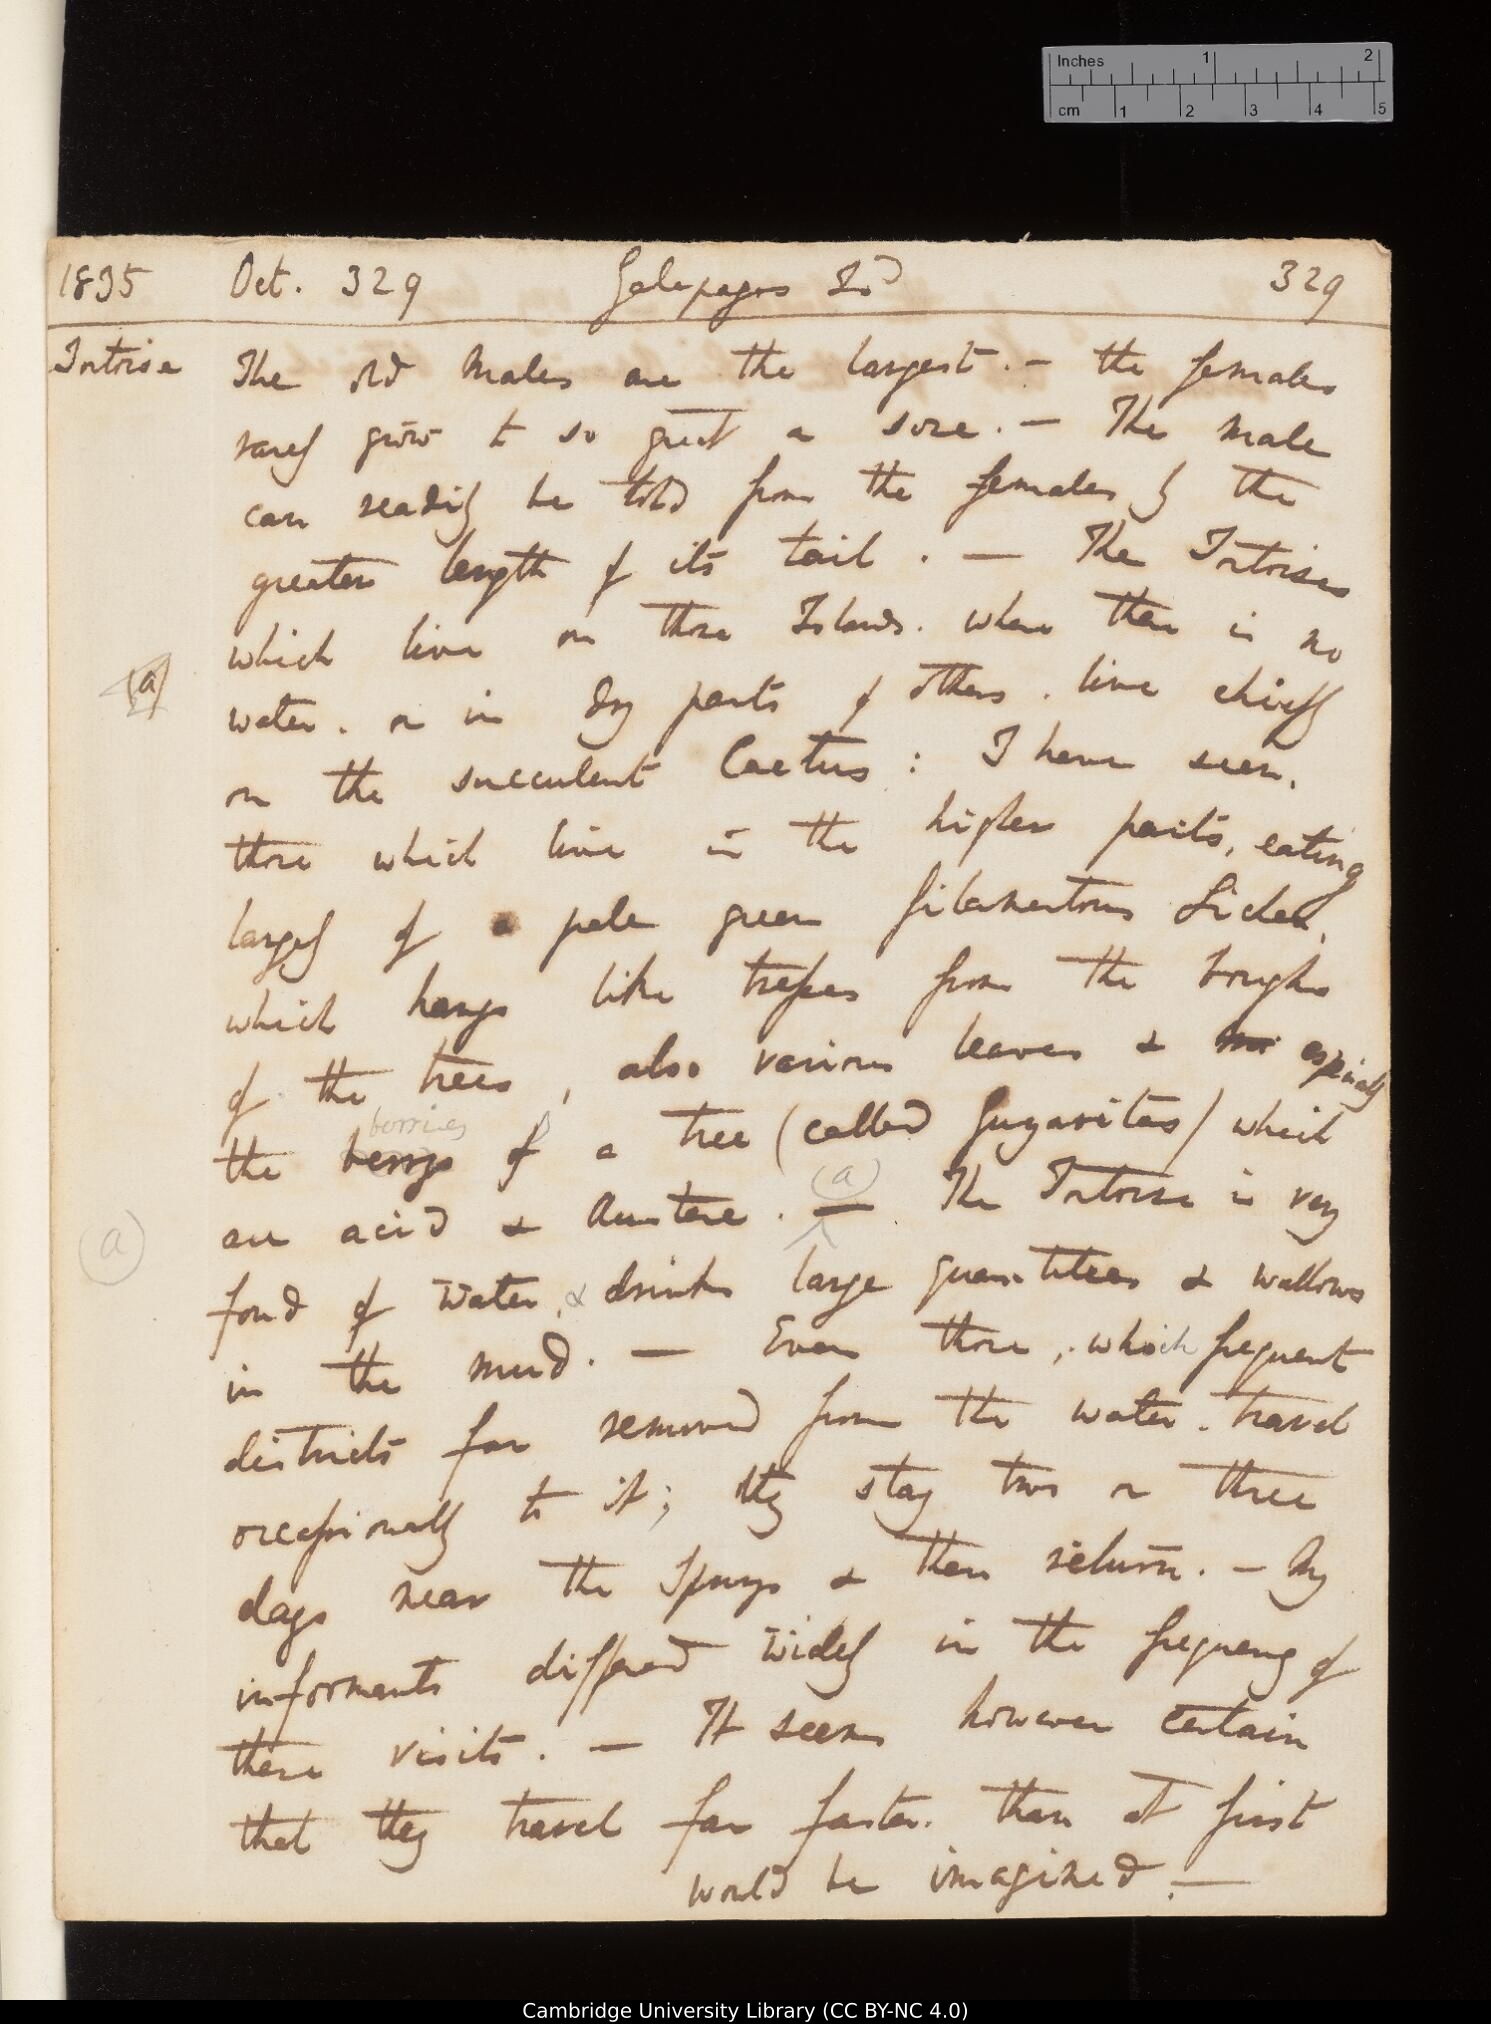 Inches 1 2
cm 1 2 3 4 5
1835 Oct. 329 Galapagos Isd 329
Tortoise The old Males are the largest. — the females
rarely grow to so great a size. — The male
can readily be told from the females by the
greater length of its tail. — The Tortoises
which live on those Islands. where there is no
(a) water. or in dry parts of others. live chiefly
on the succulent Cactus: I have seen,
those which live in the higher parts, eating
largely of a pale green filamentous Lichen,
which hangs like tresses from the boughs
of the trees, also various leaves & especially
berries
the berrys of a tree (called Guyavitas) which
(a)
are acid & Austere. — The Tortoise is very
(a)
fond of water, & drinks large quantities & wallows
in the mud. — Even those, which frequent
districts far removed from the water. travel
occassionally to it; they stay two or three
days near the Springs & then return. — My
informants differed widely in the frequency of
these visits. — It seems however certain
that they travel far faster. than at first
would be imagined. —
Cambridge University Library (CC BY-NC 4.0)